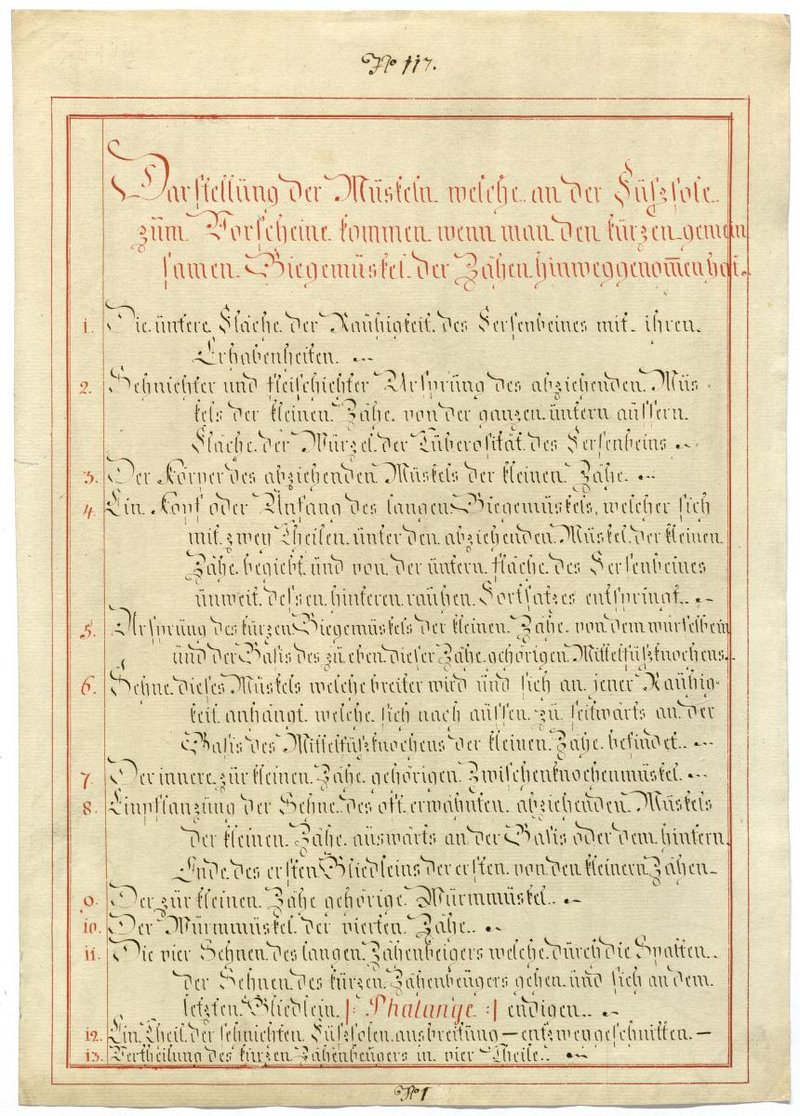 No 117.
Darstellüng der Müskeln welche an der Füszsole
züm Vorscheine kommen wenn man den kürzen gemein
samen Biegemüskel der Zähen hinweggenom̄en hat.
1. Die üntere Fläche der Raühigkeit des Fersenbeines mit ihren
Erhabenheiten.
2. Sehnichter und fleischichter Ürsprüng des abziehenden Müs
kels der kleinen Zähe von der ganzen üntern aüssern
Fläche der Würzel der Tüberosität des Fersenbeins
3. Der Körper des abziehenden Müskels der kleinen Zähe.
4. Ein Kopf oder Anfang des langen Biegemüskels, welcher sich
mit zwey Theilen ünter den abziehenden Müskel der kleinen
Zähe begiebt ünd von der üntern fläche des Fersenbeines
ünweit dessen hinteren raühen Fortsatzes entspringt.
5. Ürsprüng des kürzen Biegemüskels der kleinen Zähe von dem würfelbein
ünd der Basis des zü eben dieser Zähe gehörigen Mittelfüszknochens.
6. Sehne dieses Müskels welche breiter wird ünd sich an jener Raühig-
keit anhängt welche sich nach aüssen zü seitwärts an der
Basis des Mittelfüszknochens der kleinen Zähe befindet.
7. Der innere zür kleinen Zähe gehörigen Zwischenknochenmüskel.
8. Einpflanzüng der Sehne des oft erwähnten abziehenden Müskels
der kleinen Zähe aüswärts an der Basis oder dem hintern
Ende des ersten Gliedleins der ersten von den kleinern Zähen
9. Der zür kleinen Zähe gehörige Würmmüskel.
10. Der Würmmüskel der vierten Zähe.
11. Die vier Sehnen des langen Zähenbeigers welche dürch die Spalten
der Sehnen des kürzen Zähenbeügers gehen ünd sich an dem
letzten Gliedlein |: Phalange :| endigen.
12. Ein Theil der sehnichten Füszsolen aüsbreitüng — entzwey geschnitten. —
13. Vertheilüng des kürzen Zähenbeügers in vier Theile.
No 1